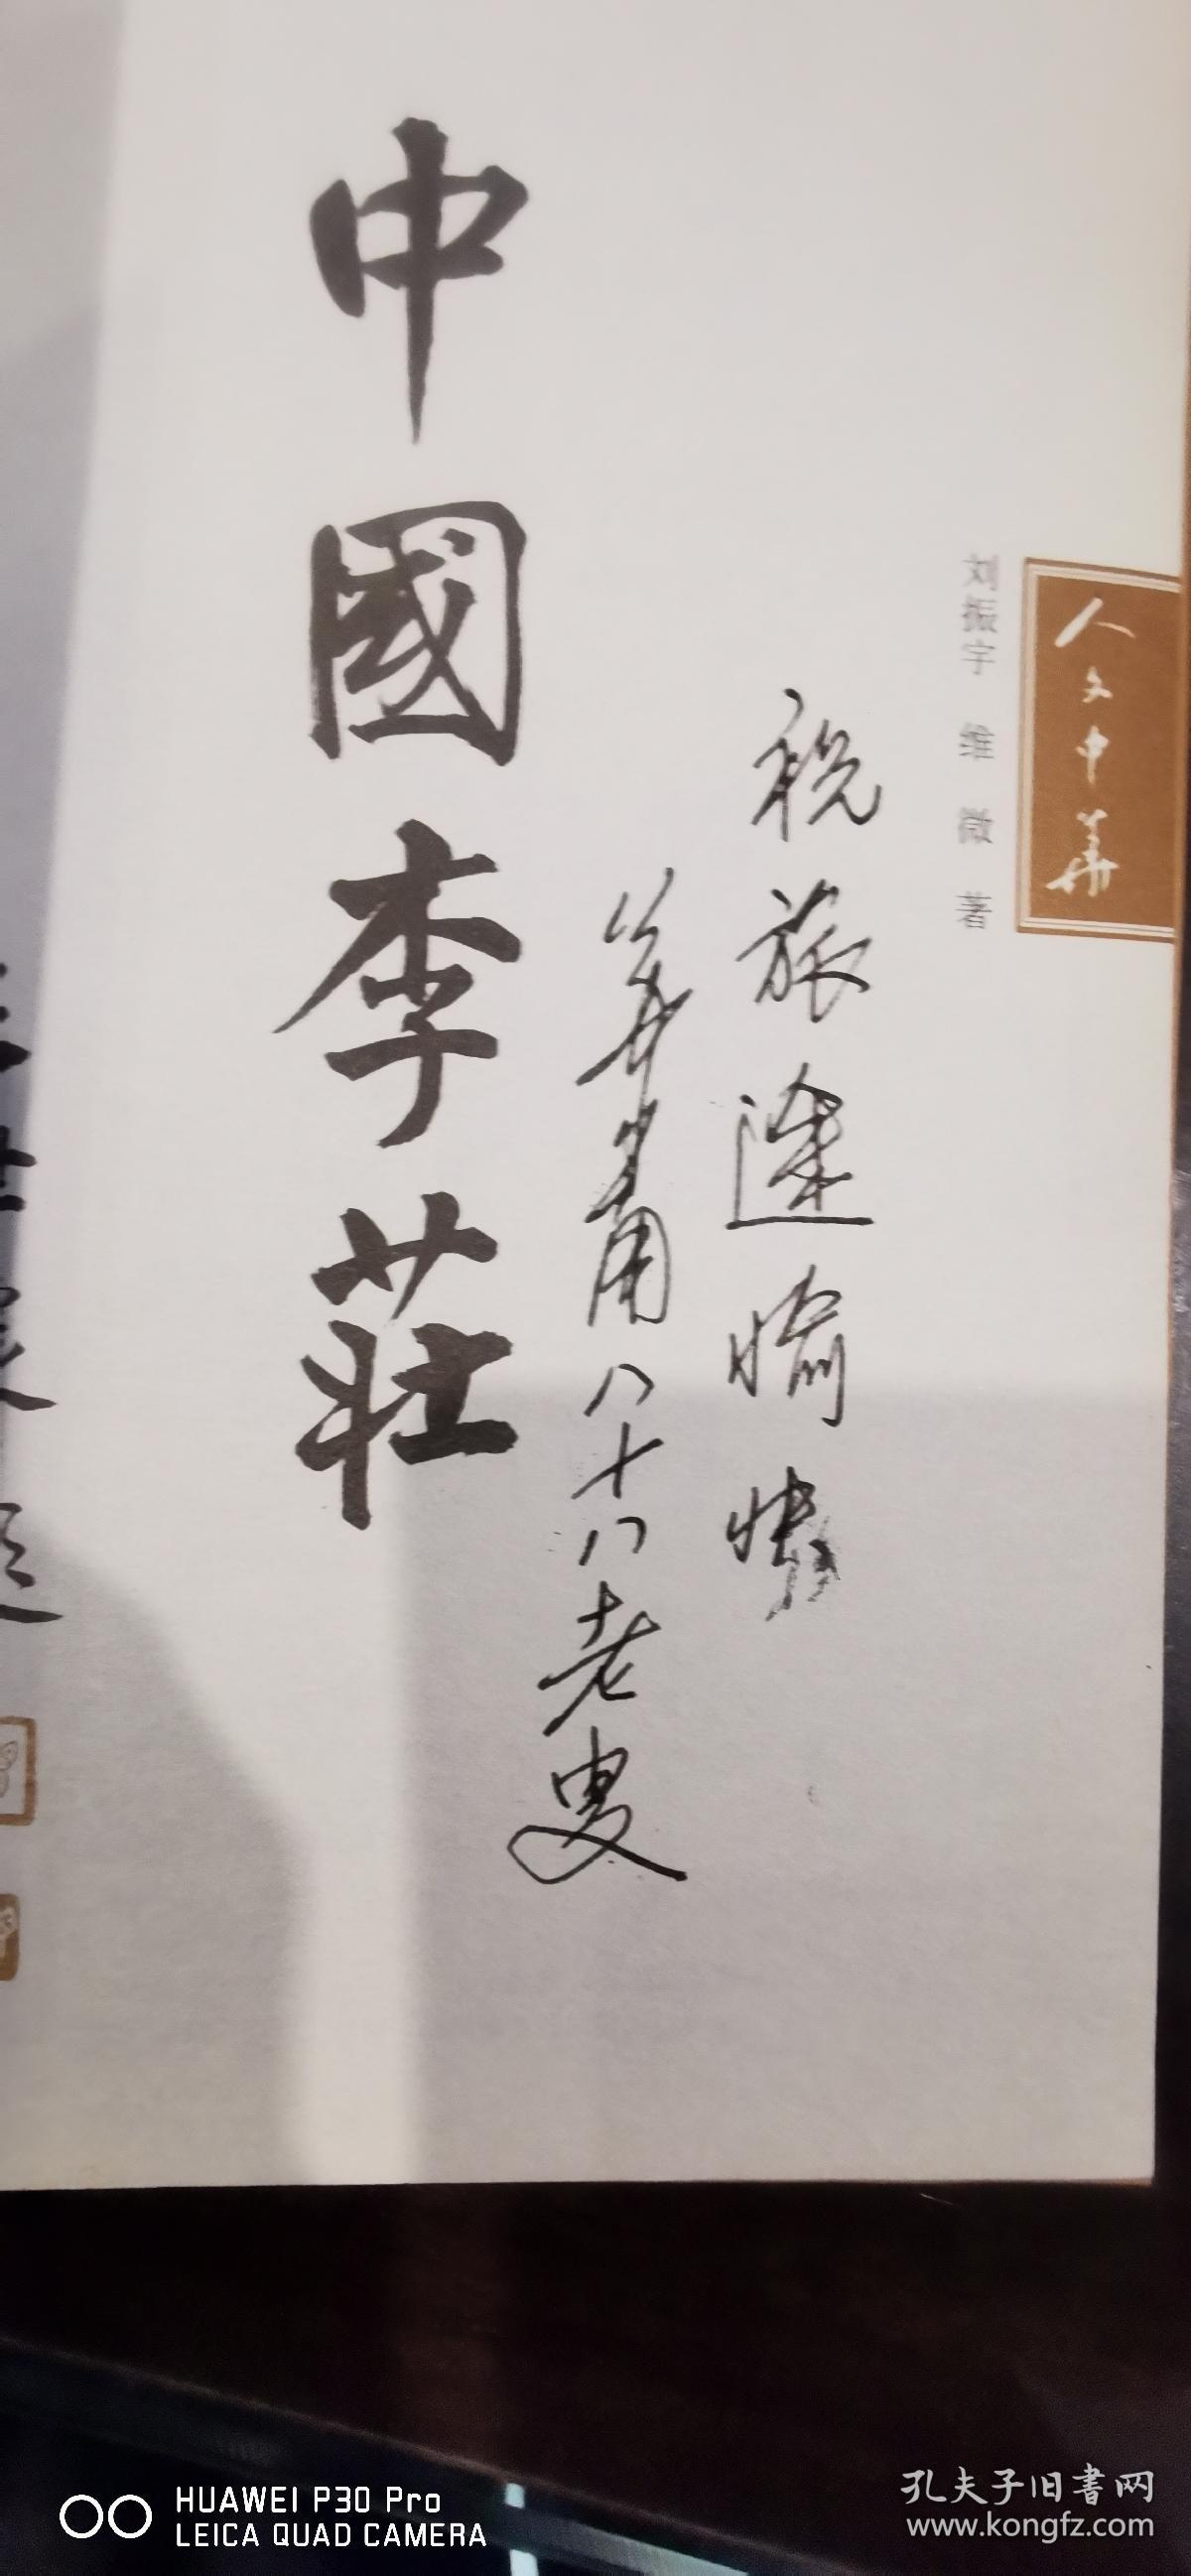 人文中華
刘振宇 维微 著
祝旅途愉快
八十八老叟
中國李莊
題
HUAWEI P30 Pro
LEICA QUAD CAMERA
孔夫子旧書网
www.kongfz.com